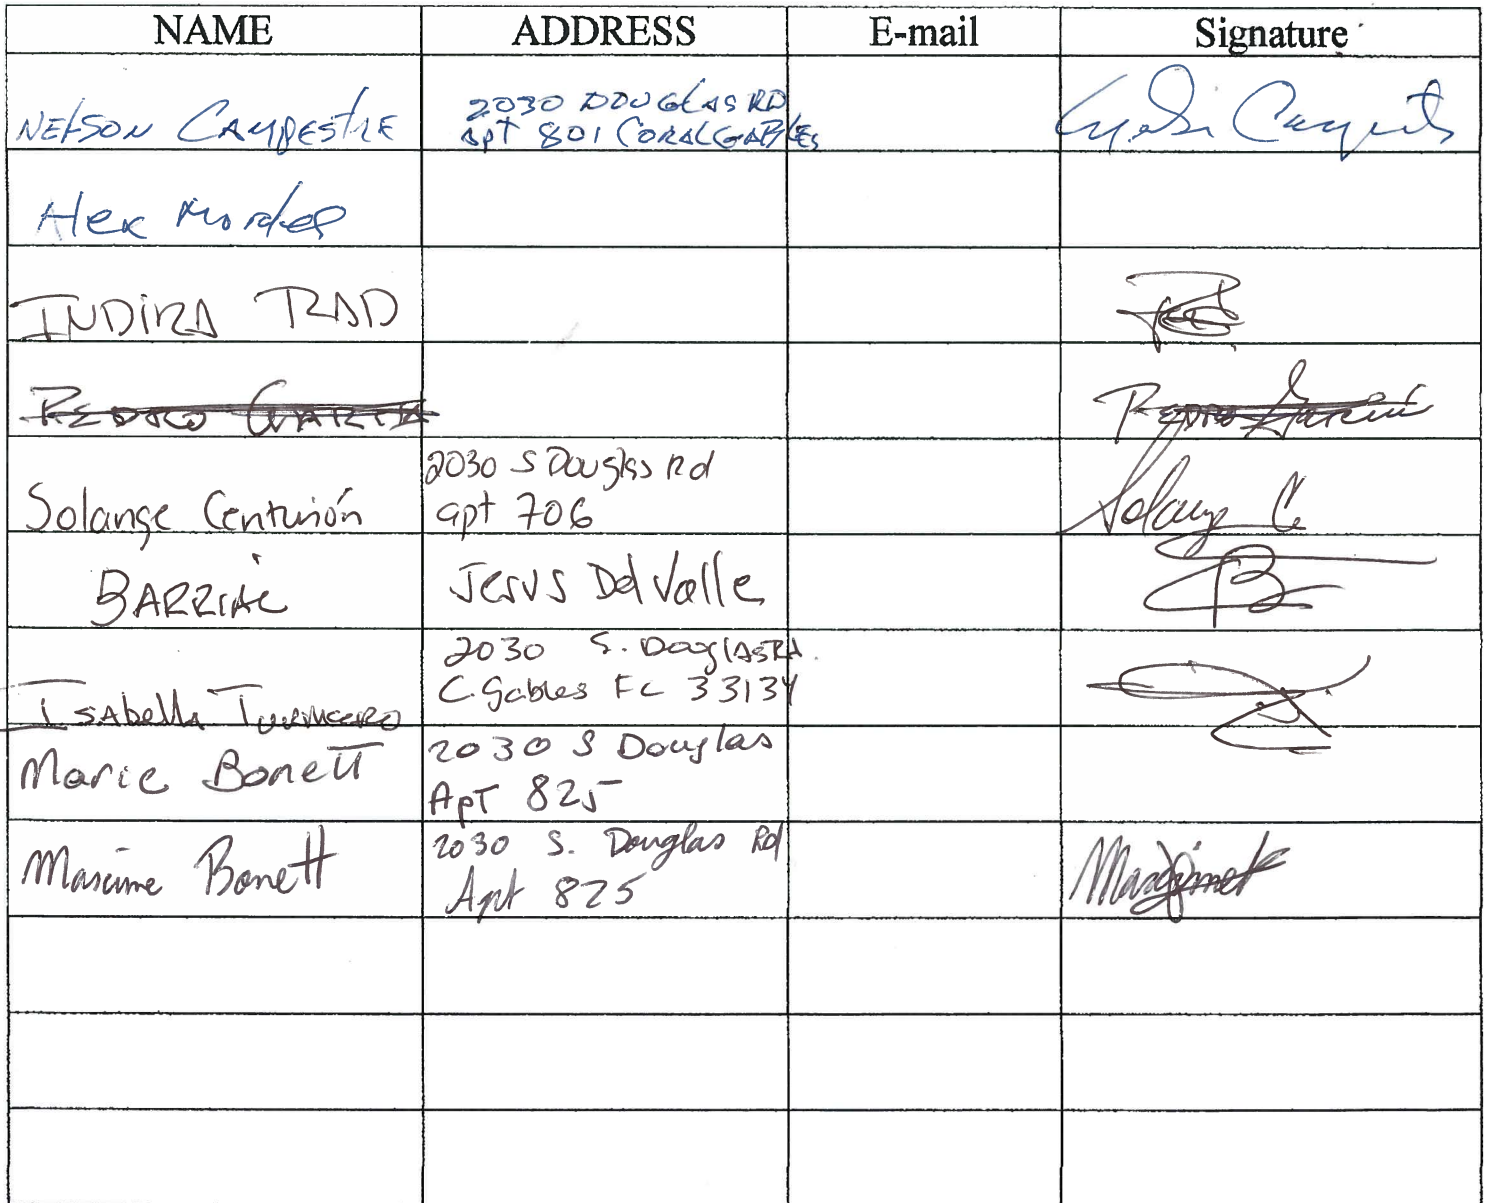 NAME ADDRESS E-mail Signature
NELSON CAMPESTRE
2030 DOUGLAS RD
apt 801 CORAL GABLES
Alex Morales
INDIRA RAD
PEDRO GARCIA Pedro García
Solange Centurión
2030 S Douglas Rd
apt 706
Solange C
BARRIAL Jesus Del Valle B
Isabella
2030 S. Douglas Rd.
C. Gables FL 33134
Marie Bonett
2030 S Douglas
Apt 825
Maxime Bonett
2030 S. Douglas Rd
Apt 825